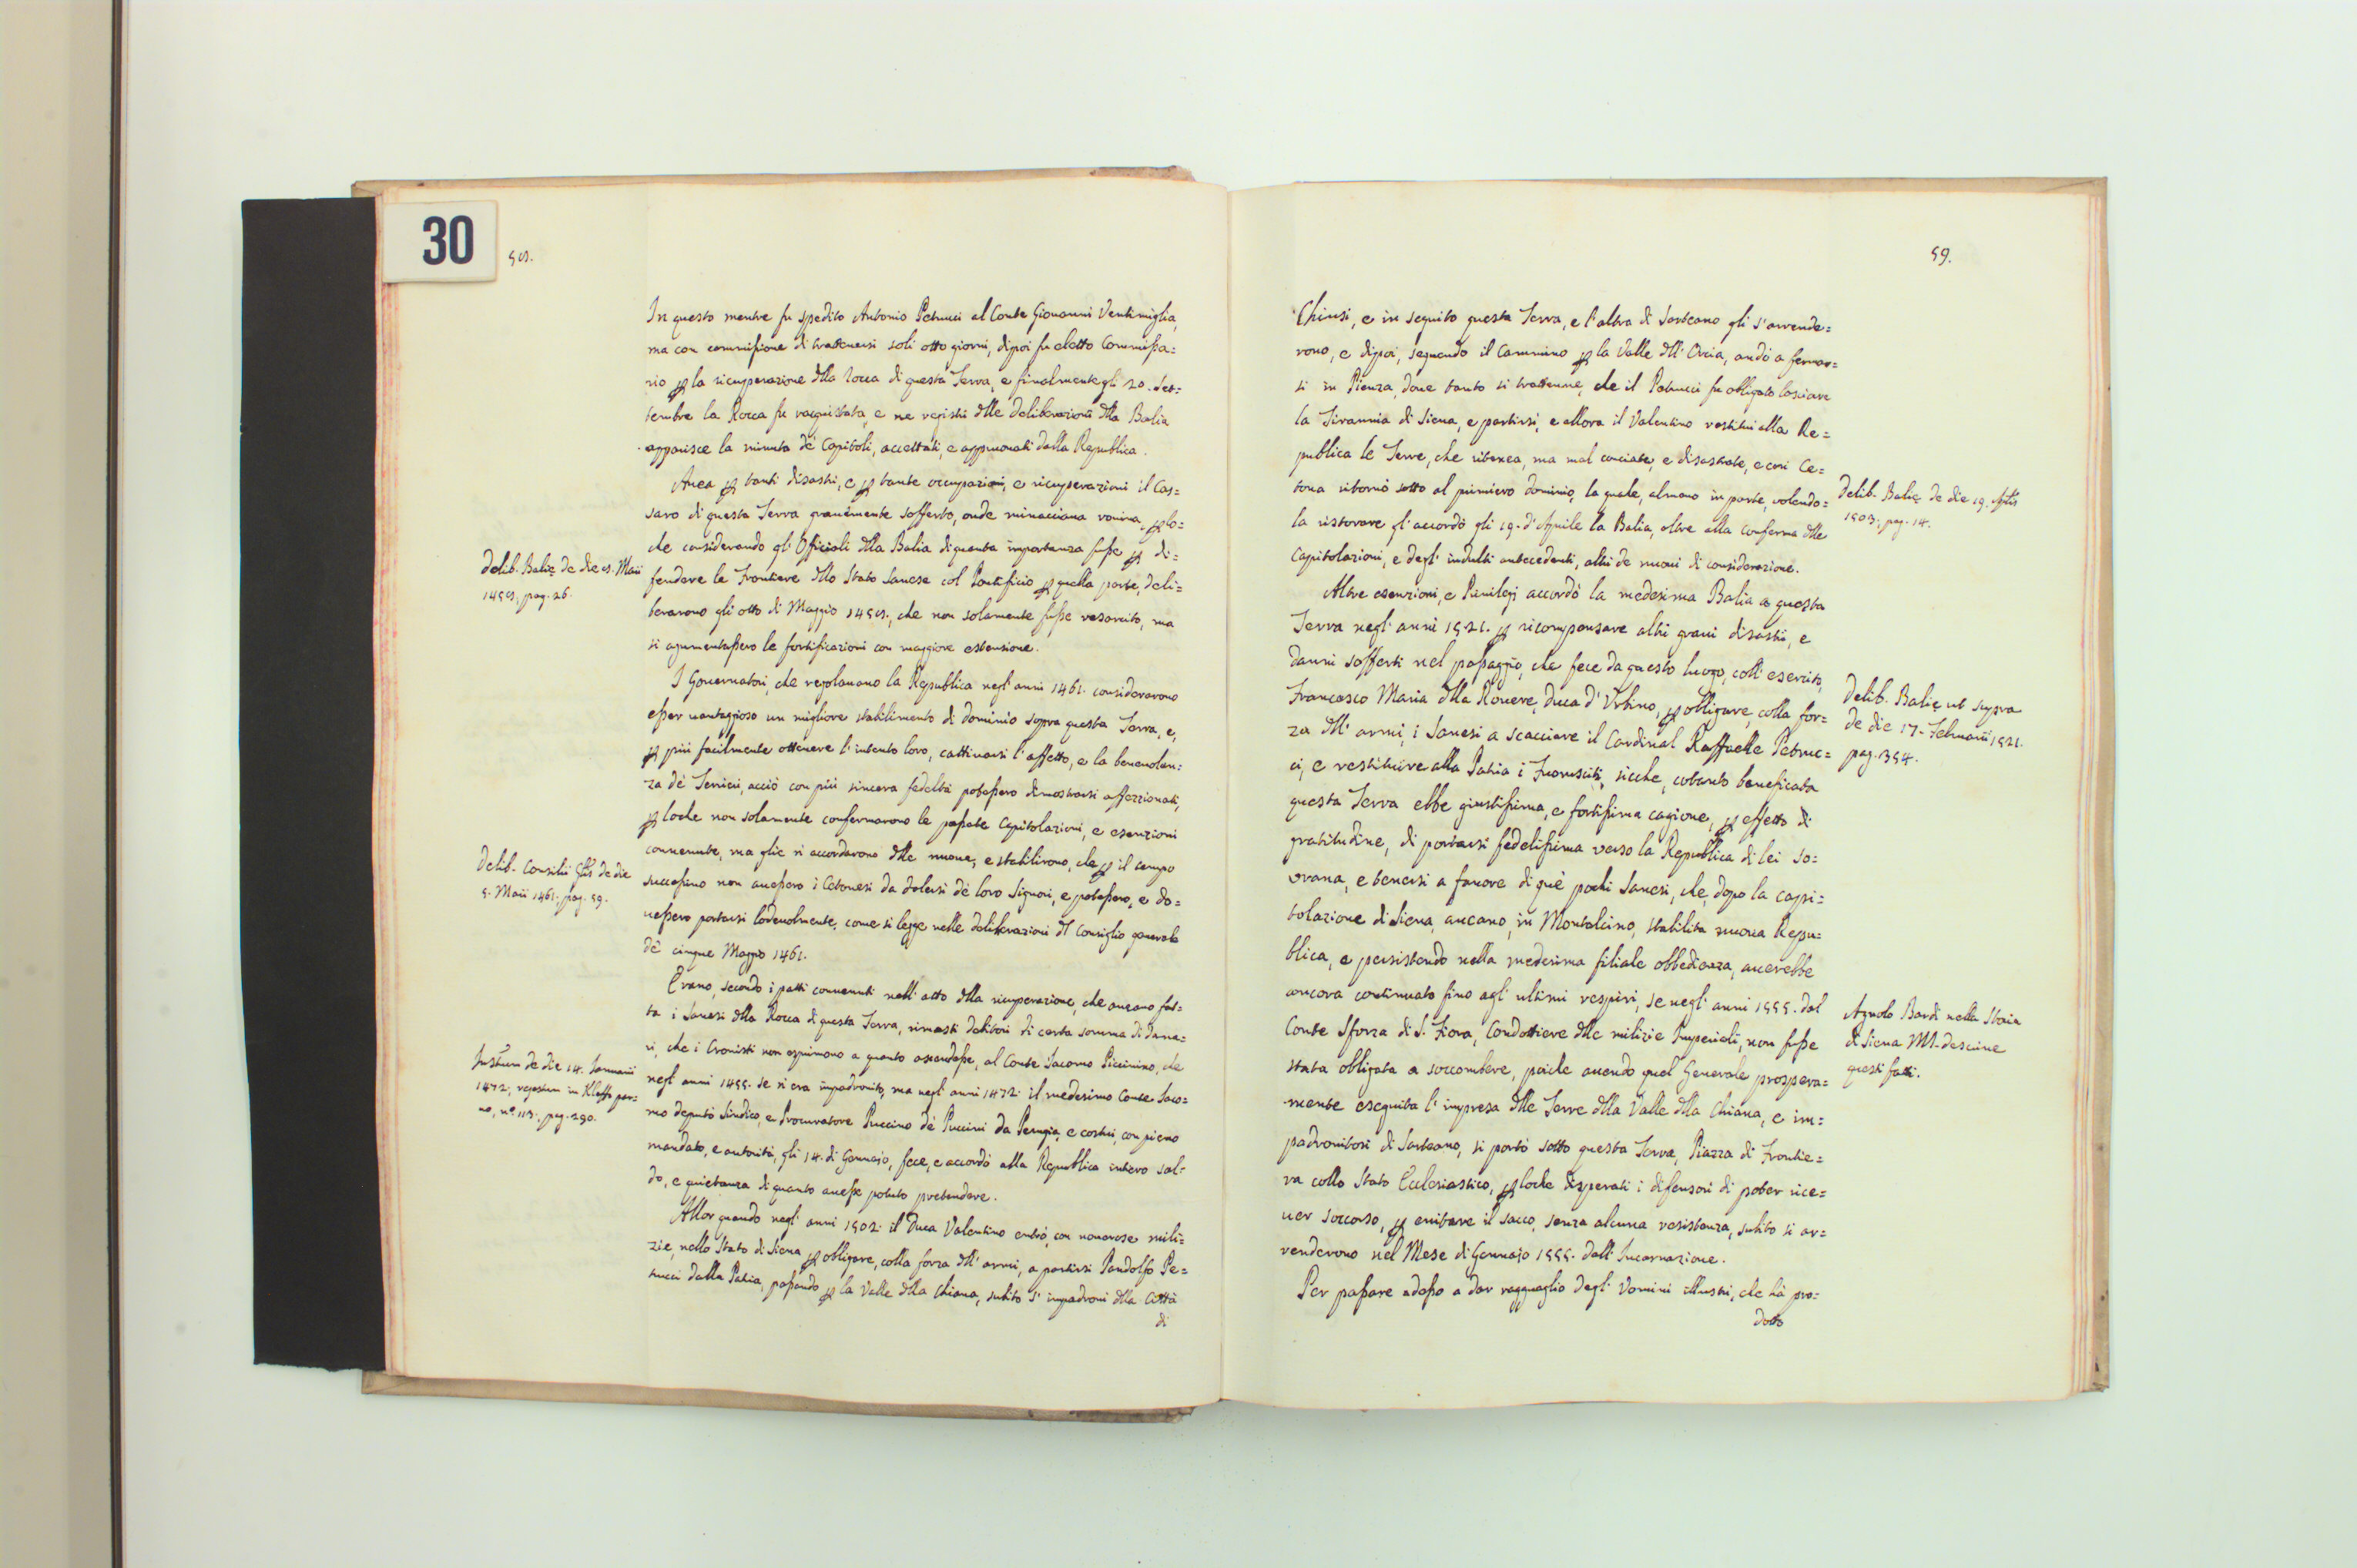 30
58.
In questo mentre fu spedito Antonio Petrucci al Conte Giouanni Ventimiglia,
ma con commissione di trattenersi soli otto giorni, dipoi fu eletto Commissa=
rio p la ricuperazione dlla Rocca di questa Terra, e finalmente gli 20. Set=
tembre la Rocca fu racquistata, e ne registri dlle deliberazioni dlla Balia
apparisce la minuta dè Capitoli, accettati, e approuati dalla Republica.
Auea p tanti disastri, e p tante occupazioni, e ricuperazioni il Cas=
saro di questa Terra grauemente sofferto, onde minacciaua rouina, p lo=
che considerando gl' Officiali dlla Balia di quanta importanza fusse p di=
fendere le Frontiere dllo Stato Sanese col Pontificio p quella parte, deli=
berarono gli otto di Maggio 1458., che non solamente fusse resarcito, ma
si agumentassero le fortificazioni con maggiore estensione.
Delib. Balię de die 8. Maii
1458, pag. 26.
I Gouernatori, che regolauano la Republica negl' anni 1461. considerarono
esser uantaggioso un migliore stabilimento di dominio sopra questa Terra, e,
p più facilmente ottenere l' intento loro, cattiuarsi l' affetto, e la beneuolen=
za dè Terrieri, acciò con più sincera fedeltà potessero dimostrarsi affezzionati,
p loche non solamente confermarono le passate Capitolazioni, e esenzioni
conuenute, ma glie n' accordarono dlle nuoue, e stabilirono, che p il tempo
successiuo non auessero i Cetonesi da dolersi dè loro Signori, e potessero, e do=
uessero portarsi lodeuolmente, come si legge nelle deliberazioni dl Consiglio generale
dè cinque Maggio 1461.
Delib. Consilii Gñlis de die
5. Maii 1461., pag. 59.
Erano, secondo i patti conuenuti nell' atto dlla ricuperazione, che aueano fat=
ta i Sanesi dlla Rocca di questa Terra, rimasti debitori di certa somma di dana=
ri, che i Cronisti non esprimono a quanto ascendesse, al Conte Iacomo Piccinino, che
negl' anni 1455. se n' era impadronito, ma negl' anni 1472. il medesimo Conte Iaco=
mo deputò Sindico, e Procuratore Puccino dè Puccini da Perugia, e costui, con pieno
mandato, e autorità, gli 14. di Gennajo, fece, e accordò alla Republica intero sal=
do, e quietanza di quanto auesse potuto pretendere.
de die 14. Ianuarii
1472, in Kleffo
nº. 113., pag. 290.
Allor quando negl' anni 1502. il Duca Valentino entrò, con numerose mili=
zie, nello Stato di Siena p obligare, colla forza dll' armi, a partirsi Pandolfo Pe=
trucci dalla Patria, passando p la Valle dlla Chiana, subito s' impadronì dlla Città
di
59.
Chiusi, e in seguito questa Terra, e l' altra di Sarteano gli s' arrende=
rono, e dipoi, seguendo il Cammino p la Valle dll' Orcia, andò a fermar=
si in Pienza, doue tanto si trattenne, che il Petrucci fu obligato lasciare
la Tirannia di Siena, e partirsi, e allora il Valentino restituì alla Re=
publica le Terre, che riteneа, ma mal conciate, e disastrate, e così Ce=
tona ritornò sotto al primiero dominio, la quale, almeno in parte, volendo=
la ristorare gl' accordò gli 19. d' Aprile la Balia, oltre alla conferma dlle
Capitolazioni, e degl' indulti antecedenti, altri de nuoui di considerazione.
Delib. Balię de die 19.
1503., pag. 14.
Altre esenzioni, e Priuilegj accordò la medesima Balia a questa
Terra negl' anni 1521. p ricompensare altri graui disastri, e
danni sofferti nel passaggio, che fece da questo luogo, coll' esercito,
Francesco Maria dlla Rouere, Duca d' Urbino, p obligare, colla for=
za dll' armi, i Sanesi a scacciare il Cardinal Raffaelle Petruc=
ci, e restituire alla Patria i Fuorusciti, sicche, cotanto beneficata
questa Terra ebbe giustissima, e fortissima cagione, p effetto di
gratitudine, di portarsi fedelissima verso la Republica di lei so=
vrana, e tenersi a fauore di què pochi Sanesi, che, dopo la capi=
tolazione di Siena, aueano, in Montalcino, stabilita nuoua Repu=
blica, e persistendo nella medesima filiale obbedienza, auerebbe
ancora continuato fino agl' ultimi respiri, se negl' anni 1555. dal
Conte Sforza di S. Fiora, Condottiere dlle milizie Imperiali, non fusse
stata obligata a soccombere, poiche auendo quel Generale prospera=
mente eseguita l' impresa dlle Terre dlla Valle dlla Chiana, e im=
padronitosi di Sarteano, si portò sotto questa Terra, Piazza di Frontie=
ra collo Stato Ecclesiastico, p loche disperati i difensori di poter rice=
uer soccorso, p euitare il sacco, senza alcuna resistenza, subito si ar=
renderono nel Mese di Gennajo 1555. dall' Incarnazione.
Delib. Balię ut supra
de die 17. Februarii 1521.
pag. 354.
Agnolo Bardi nella Storia
di Siena MS. descriue
questi fatti.
Per passare adesso a dar ragguaglio degl' Vomini illustri, che hà pro=
dotto